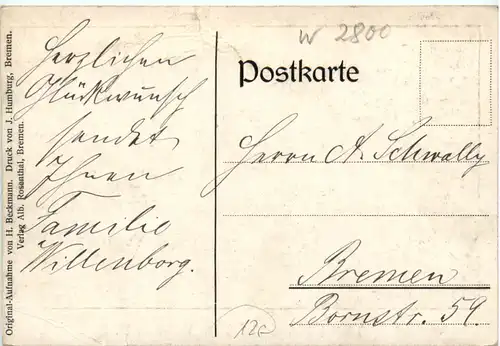 Original-Aufnahme von H. Beckmann. Druck von J. Humburg, Bremen.
Verlag Alb. Rosenthal, Bremen.
Herzlichen
Glückwunsch
sendet
Ihnen
Familie
Willenborg.
W 2800
Postkarte
Herrn A. Schwally
Bremen
Bornstr. 59.
12€